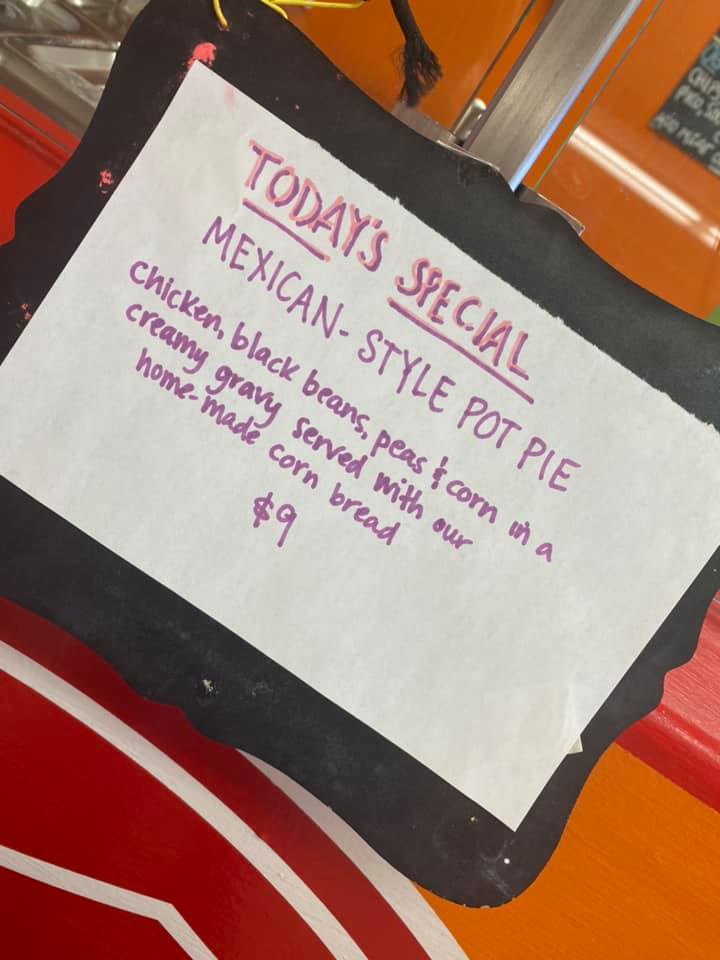 TODAY'S SPECIAL
MEXICAN- STYLE POT PIE
chicken, black beans, peas & corn in a
creamy gravy served with our
home-made corn bread
$9